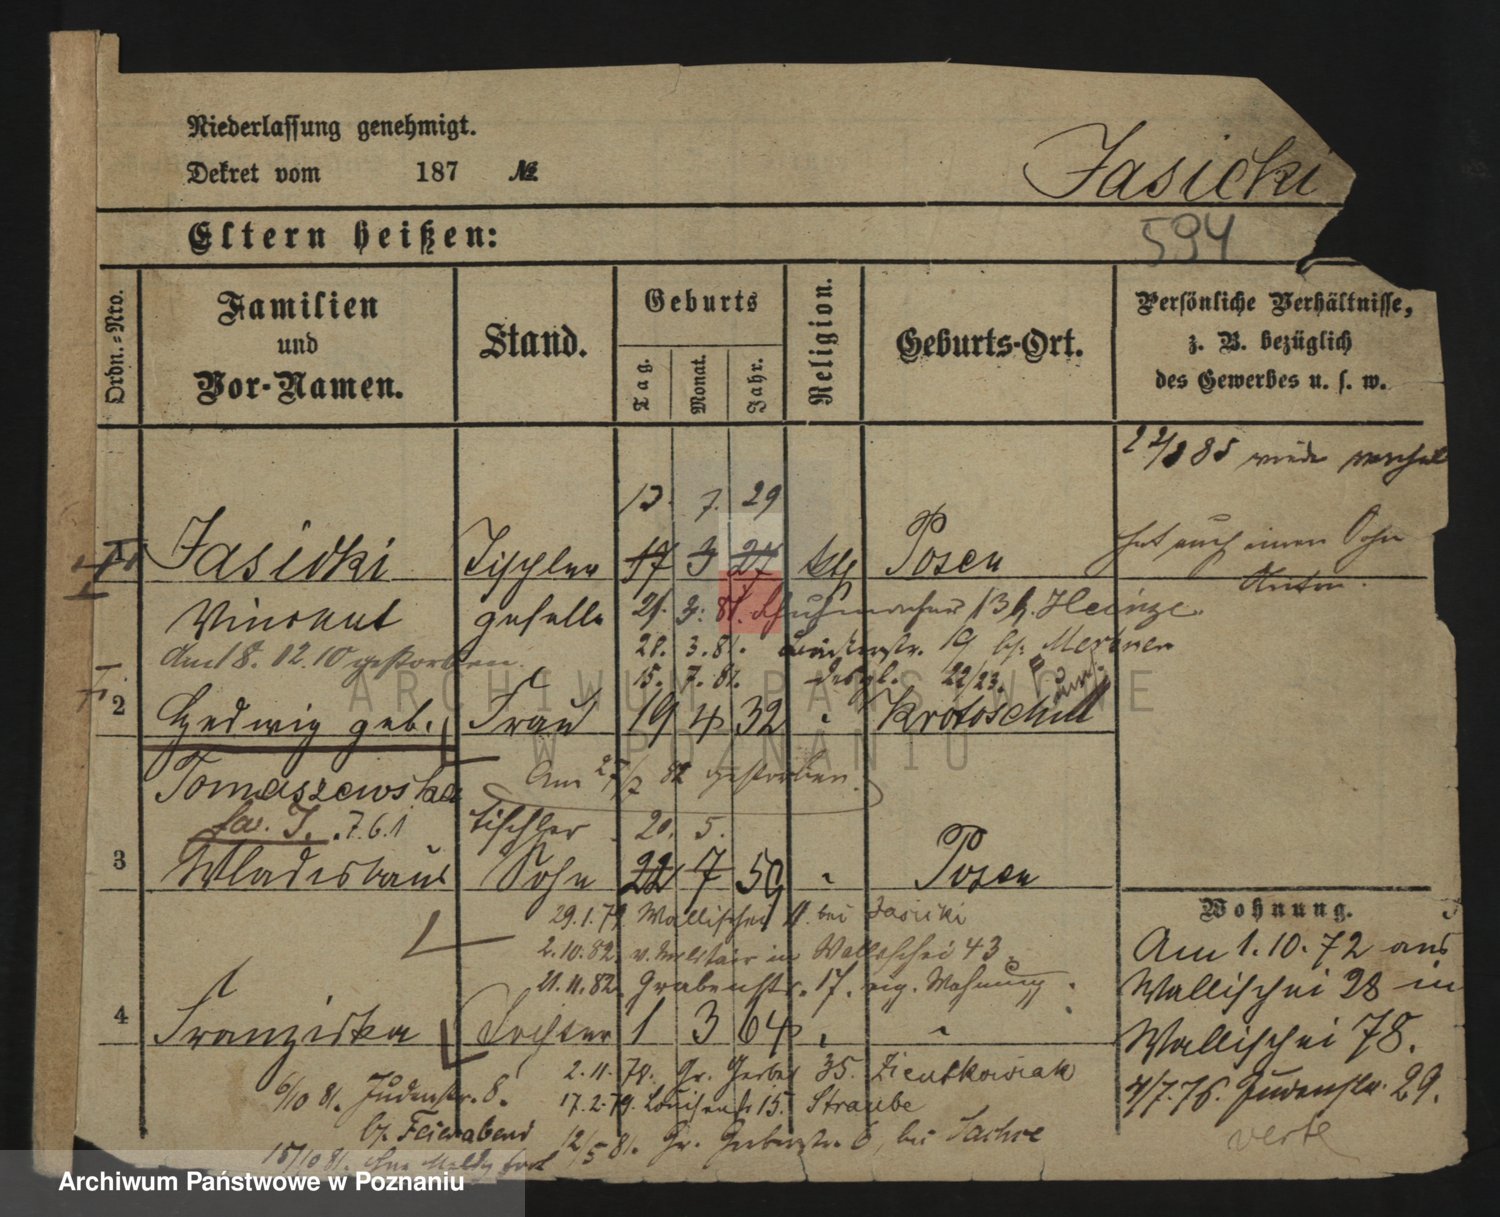 Niederlassung genehmigt.
Dekret vom 187 №
Jasicki
594
Eltern heißen:
Ordn.-Nro.
Familien und Vor-Namen.
Stand.
Geburts
Tag.
Monat.
Jahr.
Religion.
Geburts-Ort.
Persönliche Verhältnisse,
z. B. bezüglich
des Gewerbes u. s. w.
22/3 85
13. 7. 29
1 Jasicki Tischler 17 3 27 kth Posen
hat auch einen Sohn
Anton.
Vincent geselle 21. 3. 81. Schuhmacherstr. 13 b. Heinze
Am 18. 12. 10 gestorben.
28. 3. 81. 19 bei Mertner
15. 7. 81. desgl. 22/23.
2 Hedwig geb. Frau 19 4 32 " Krotoschin
Tomaszewska Am 27/2 82 gestorben.
7.6.1 Tischler 20. 5.
3 Wladislaus Sohn 22 7 59 " Posen
29.1.79. Wallischei bei Jasicki
2.10.82. v. Militair in Wallischei 43.
21.11.82. Grabenstr. 17. eig. Wohnung.
4 Franziska Tochter 1 3 64 " "
2.11.78. Gr. Gerber 35. Zientkowiak
6/10 81. Judenstr. 8. 17.2.79. Louisenstr 15. Straube
b. Feierabend 12/5 81. Gr. Gerberstr. 6, bei Sachse
15/10 81.
Wohnung.
Am 1.10.72 aus
Wallischei 28 in
Wallischei 78.
4/7.76. Judenstr. 29.
verte
ARCHIWUM PAŃSTWOWE
W POZNANIU
Archiwum Państwowe w Poznaniu